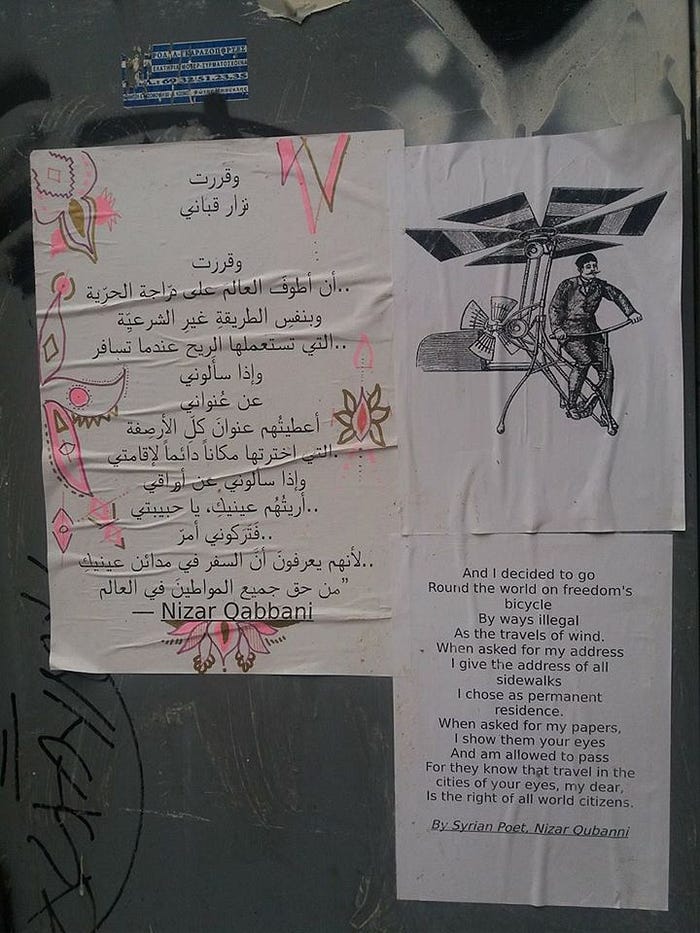 وقررت
نزار قباني
وقررت
..أن أطوفَ العالم على درّاجة الحرّية
وبنفسِ الطريقةِ غير الشرعيّة
..التي تستعملها الريح عندما تسافر
وإذا سألوني
عن عُنواني
أعطيتُهم عنوانَ كلّ الأرصِفة
التي اخترتها مكاناً دائماً لإقامتي.
وإذا سألوني عن أوراقي
..أريتُهُم عينيكِ، يا حبيبتي
..فَتَركوني أمرّ
..لأنهم يعرفونَ أنَّ السفر في مدائن عينيكِ
”من حق جميع المواطنينَ في العالم
— Nizar Qabbani
And I decided to go
Round the world on freedom's
bicycle
By ways illegal
As the travels of wind.
When asked for my address
I give the address of all
sidewalks
I chose as permanent
residence.
When asked for my papers,
I show them your eyes
And am allowed to pass
For they know that travel in the
cities of your eyes, my dear,
Is the right of all world citizens.
By Syrian Poet, Nizar Qubanni